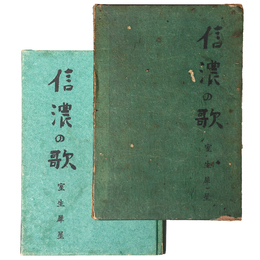 信濃の歌
室生犀星
信濃の歌
室生犀星